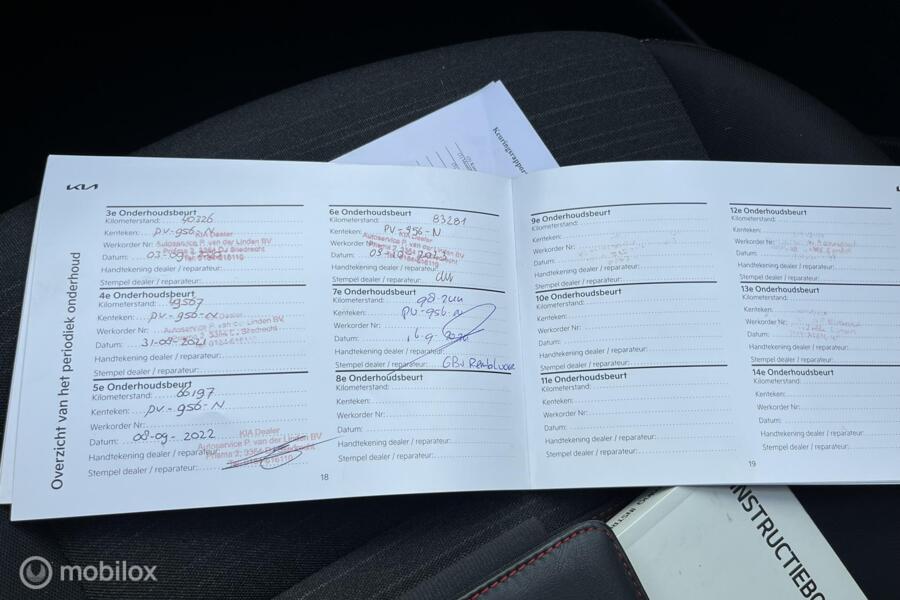 Keuringsrapport
KIA
Overzicht van het periodiek onderhoud
3e Onderhoudsbeurt
Kilometerstand: 40326
Kenteken: PV-956-N
Werkorder Nr:
KIA Dealer
Autoservice P. van der Linden BV
Datum: 03-09-
Handtekening dealer / reparateur:
Stempel dealer / reparateur:
4e Onderhoudsbeurt
Kilometerstand: 49567
Kenteken: PV-956-N
Werkorder Nr:
Datum: 31-08-2021
Handtekening dealer / reparateur:
Stempel dealer / reparateur:
5e Onderhoudsbeurt
Kilometerstand: 66197
Kenteken: PV-956-N
Werkorder Nr:
Datum: 08-09-2022
KIA Dealer
Autoservice P. van der Linden BV
Handtekening dealer / reparateur:
Stempel dealer / reparateur:
18
6e Onderhoudsbeurt
Kilometerstand: 83281
Kenteken: PV-956-N
KIA Dealer
Werkorder Nr:
Autoservice P. van der Linden BV
Datum:
Handtekening dealer / reparateur:
Stempel dealer / reparateur:
7e Onderhoudsbeurt
Kilometerstand:
Kenteken: PV-956-N
Werkorder Nr:
Datum:
Handtekening dealer / reparateur:
Stempel dealer / reparateur:
8e Onderhoudsbeurt
Kilometerstand:
Kenteken:
Werkorder Nr:
Datum:
Handtekening dealer / reparateur:
Stempel dealer / reparateur:
9e Onderhoudsbeurt
Kilometerstand:
Kenteken:
Werkorder Nr:
Datum:
Handtekening dealer / reparateur:
Stempel dealer / reparateur:
10e Onderhoudsbeurt
Kilometerstand:
Kenteken:
Werkorder Nr:
Datum:
Handtekening dealer / reparateur:
Stempel dealer / reparateur:
11e Onderhoudsbeurt
Kilometerstand:
Kenteken:
Werkorder Nr:
Datum:
Handtekening dealer / reparateur:
Stempel dealer / reparateur:
12e Onderhoudsbeurt
Kilometerstand:
Kenteken:
Werkorder Nr:
Datum:
Handtekening dealer / reparateur:
Stempel dealer / reparateur:
13e Onderhoudsbeurt
Kilometerstand:
Kenteken:
Werkorder Nr:
Datum:
Handtekening dealer / reparateur:
Stempel dealer / reparateur:
14e Onderhoudsbeurt
Kilometerstand:
Kenteken:
Werkorder Nr:
Datum:
Handtekening dealer / reparateur:
Stempel dealer / reparateur:
19
INSTRUCTIEBO
mobilox